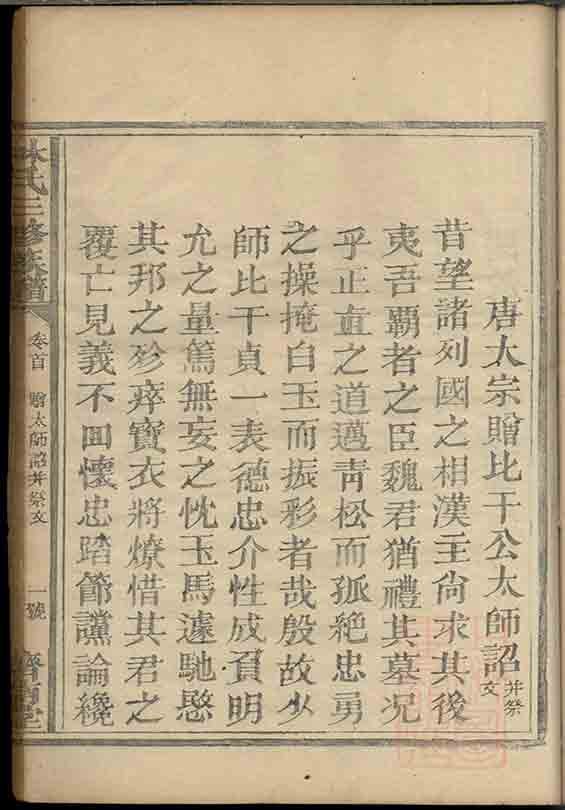 唐太宗贈比干公太師詔并祭文
昔望諸列國之相漢主尚求其後
夷吾覇者之臣魏君猶禮其墓况
乎正直之道邁青松而孤絶忠勇
之操掩白玉而振彩者哉殷故少
師比干貞一表德忠介性成負明
允之量篤無妄之忱玉馬遽馳愍
其邦之殄瘁寶衣將燎惜其君之
覆亡見義不回懷忠踏節讜論纔
林氏三修族譜
卷首
贈太師詔并祭文
一號